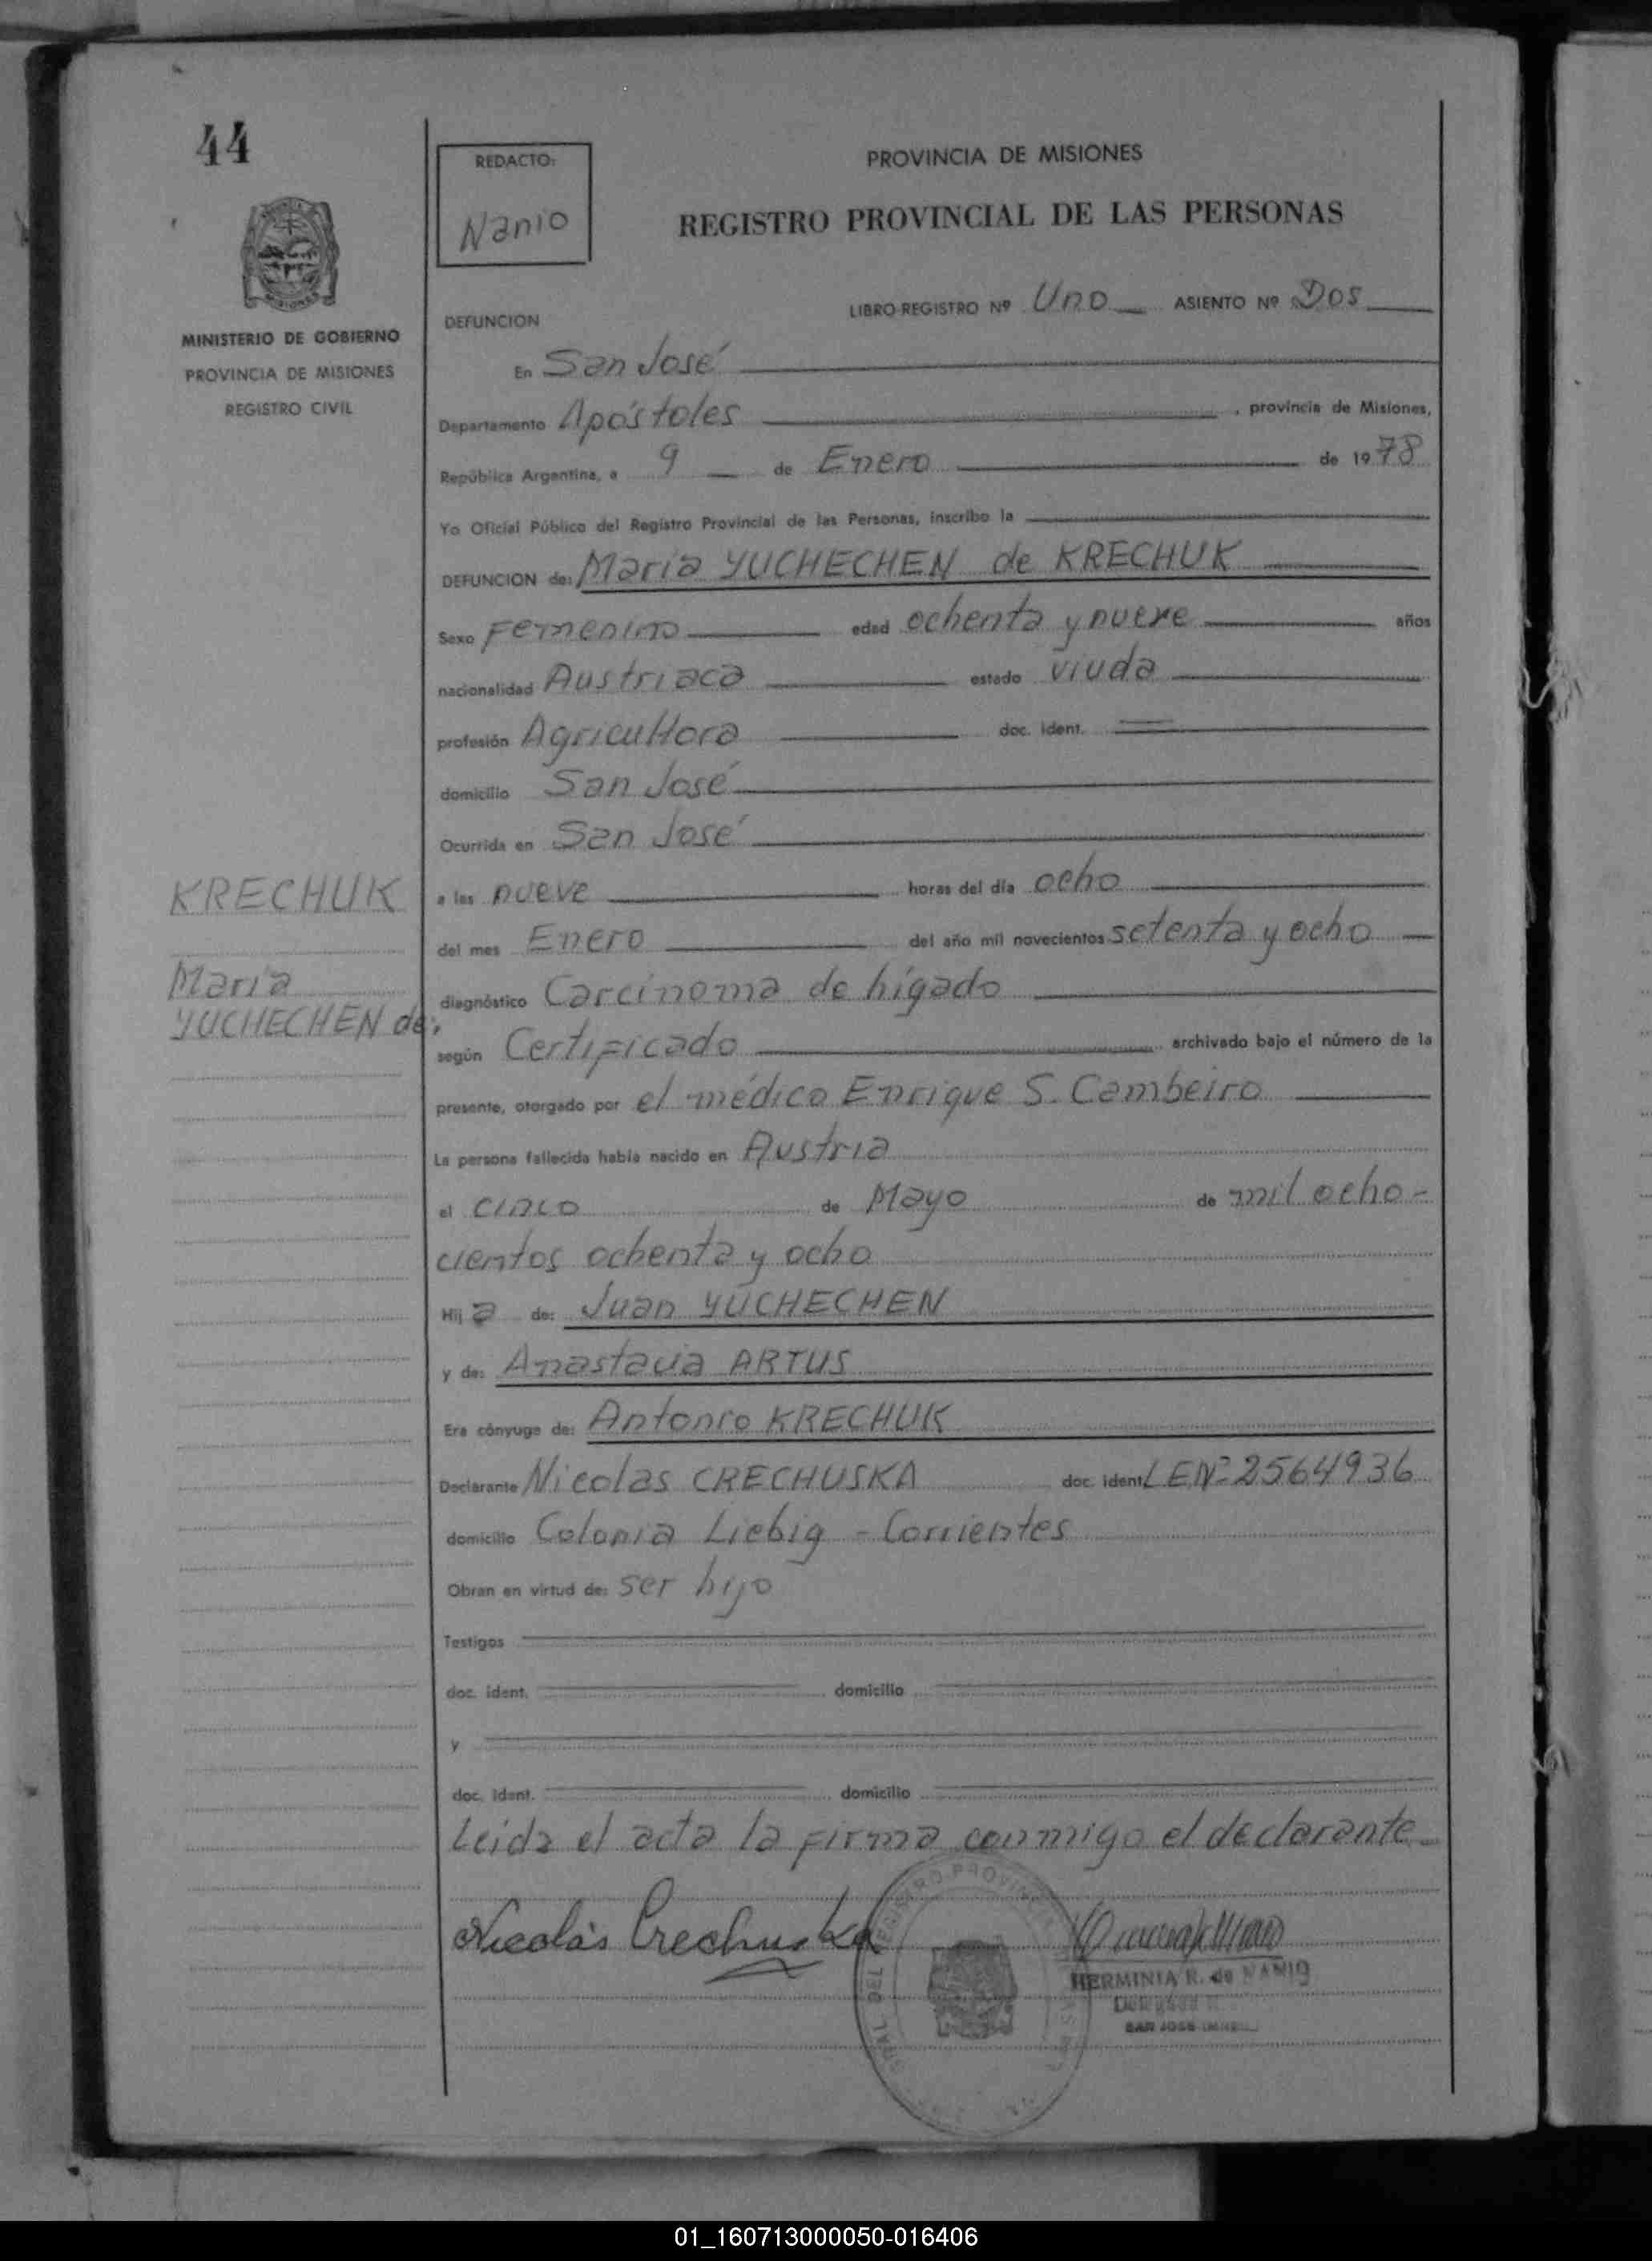 44
REDACTO:
Nanio
PROVINCIA DE MISIONES
REGISTRO PROVINCIAL DE LAS PERSONAS
MISIONES
MINISTERIO DE GOBIERNO
PROVINCIA DE MISIONES
REGISTRO CIVIL
DEFUNCION
LIBRO REGISTRO Nº Uno ASIENTO Nº Dos
En San José
Departamento Apóstoles , provincia de Misiones,
República Argentina, a 9 de Enero de 1978
Yo Oficial Público del Registro Provincial de las Personas, inscribo la
DEFUNCION de: María YUCHECHEN de KRECHUK
Sexo Femenino edad ochenta y nueve años
nacionalidad Austriaca estado viuda
profesión Agricultora doc. ident.
domicilio San José
Ocurrida en San José
KRECHUK
María
YUCHECHEN de.
a las nueve horas del día ocho
del mes Enero del año mil novecientos setenta y ocho
diagnóstico Carcinoma de hígado
según Certificado archivado bajo el número de la
presente, otorgado por el médico Enrique S. Cambeiro
La persona fallecida había nacido en Austria
el cinco de Mayo de mil ocho-
cientos ochenta y ocho
Hija de: Juan YUCHECHEN
y de: Anastacia ARTUS
Era cónyuge de: Antonio KRECHUK
Declarante Nicolas CRECHUSKA doc. ident LE Nº 2564936
domicilio Colonia Liebig - Corrientes
Obran en virtud de: ser hijo
Testigos
doc. ident. domicilio
y
doc. ident. domicilio
Leida el acta la firma conmigo el declarante
Nicolás Crechuska
HERMINIA R. de NANIO
SAN JOSE
01_160713000050-016406